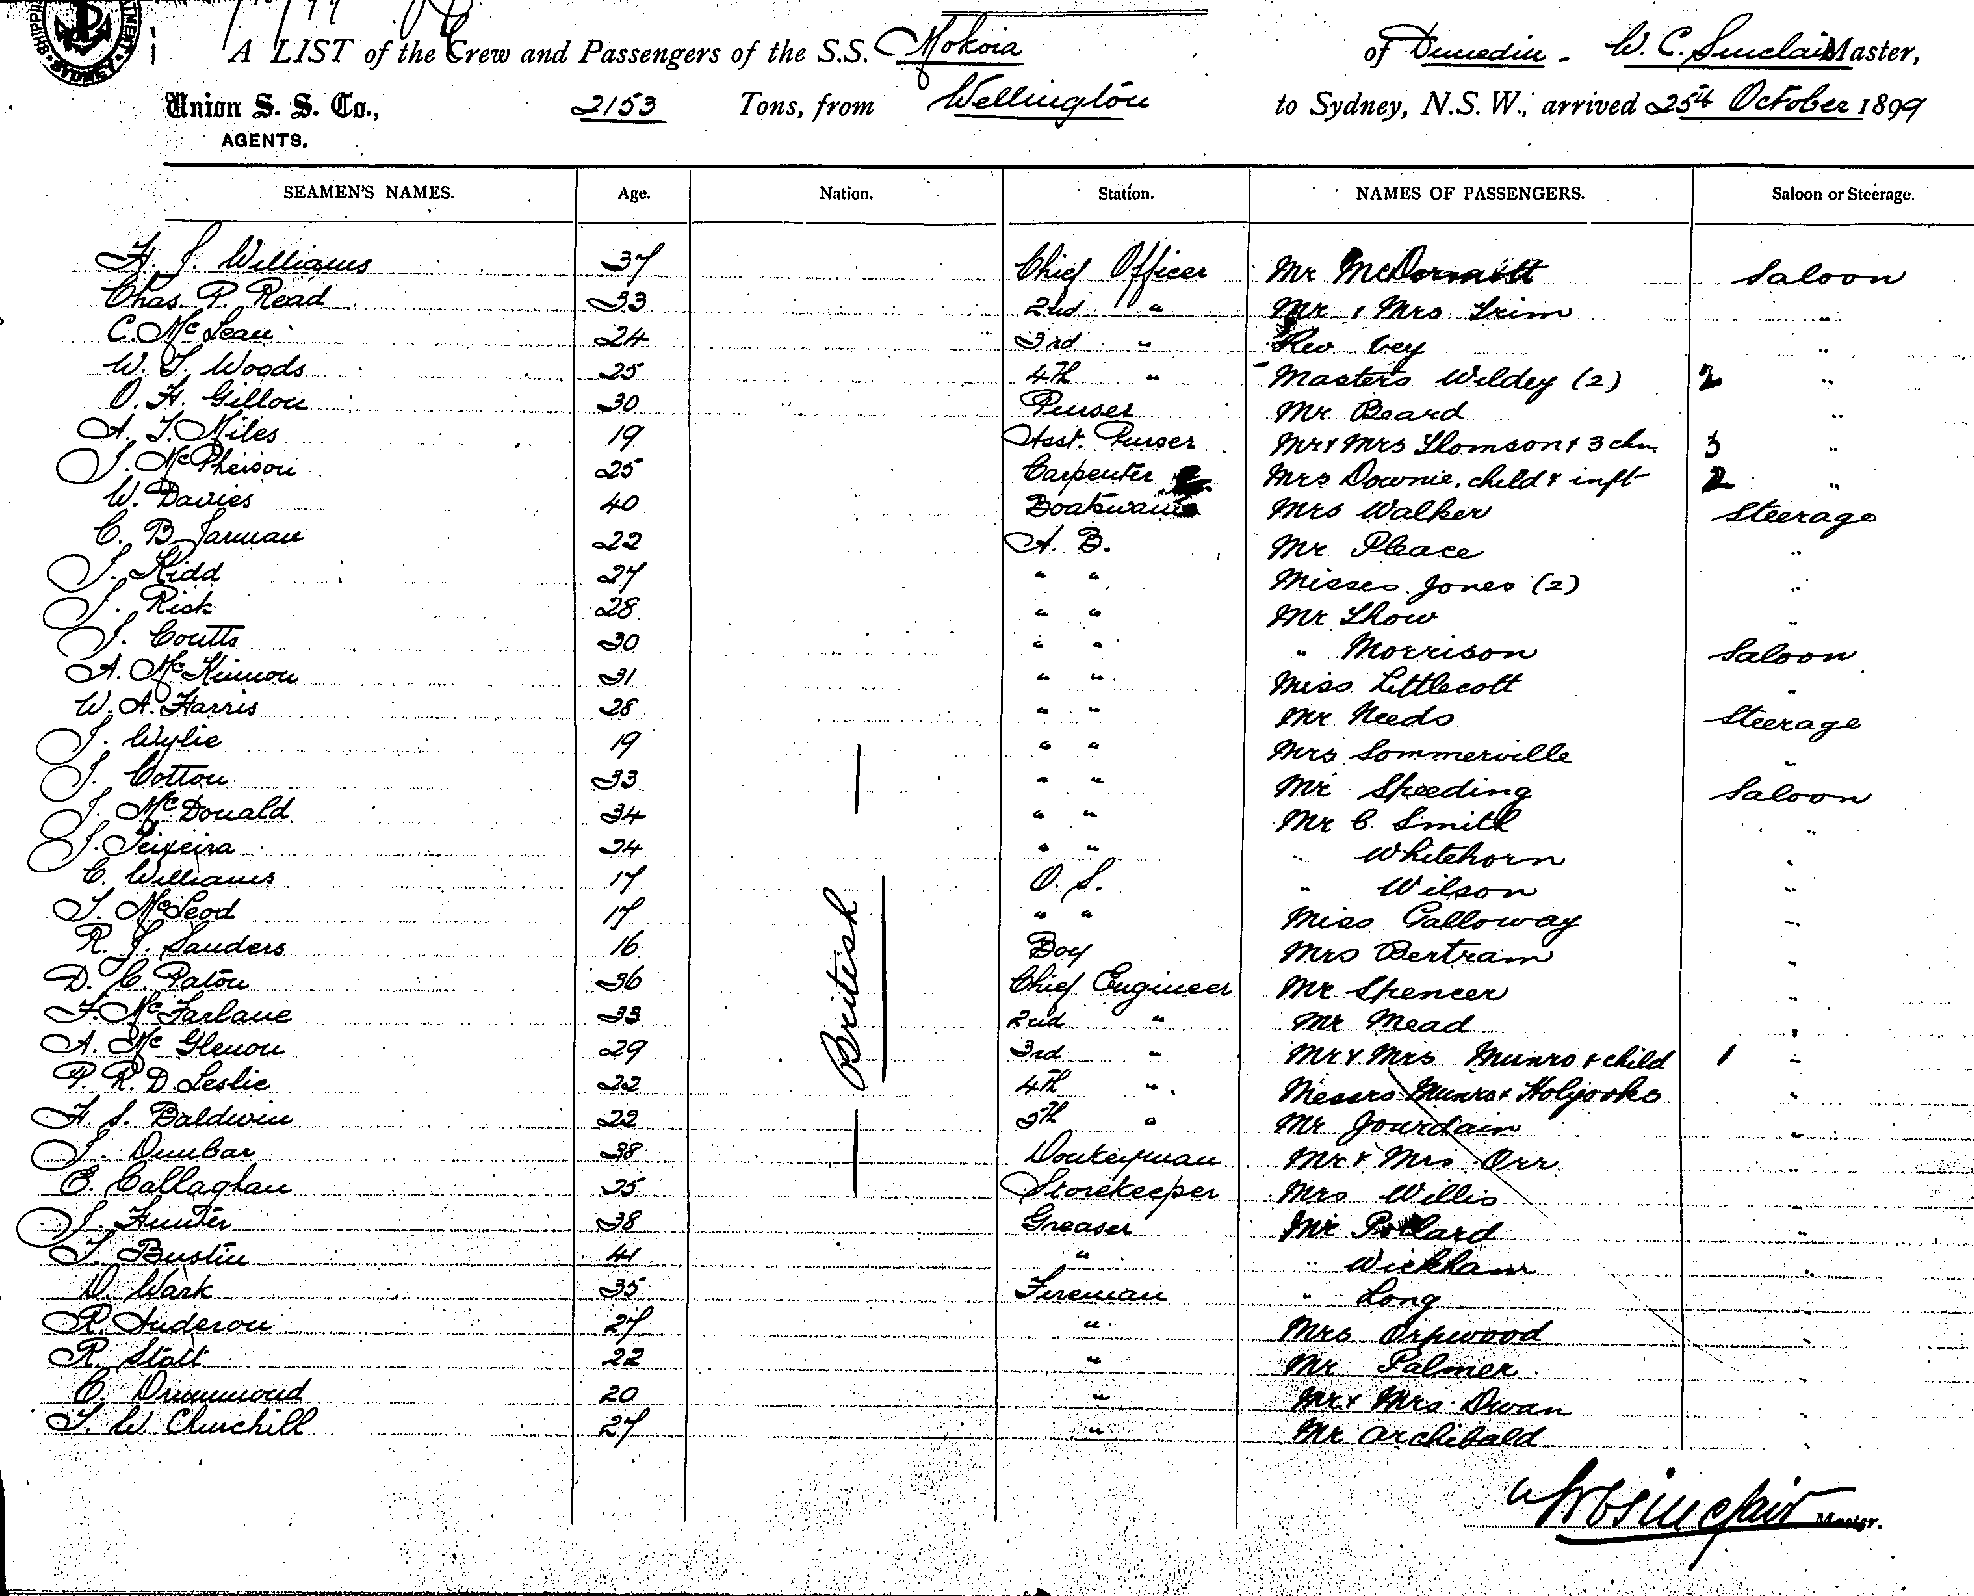 A LIST of the Crew and Passengers of the S.S. Mokoia of Dunedin - W. C. Sinclair Master,
Union S. S. Co., 2153 Tons, from Wellington to Sydney, N.S.W., arrived 25th October 1899
AGENTS.
SEAMEN'S NAMES. Age. Nation. Station. NAMES OF PASSENGERS. Saloon or Steerage.
H. J. Williams 37 Chief Officer Mr McDormott Saloon
Chas P. Read 33 2nd " Mr & Mrs Trim "
C. McLean 24 3rd " Rev Vey "
W. T. Woods 25 4th " Masters Wildey (2) 2 "
O. H. Gillon 30 Purser Mr Beard "
A. T. Miles 19 Asst. Purser Mr & Mrs Thomson & 3 chn 3 "
J. McPherson 25 Carpenter Mrs Downie, child & inft 2 "
W. Davies 40 Boatswain Mrs Walker Steerage
C. B. Jarman 22 A. B. Mr Pleace "
J. Kidd 27 " " Misses Jones (2) "
J. Risk 28 " " Mr Show "
J. Coutts 30 " " " Morrison Saloon
A. McKinnon 31 " " Miss Littlecott "
W. A. Harris 28 " " Mr Needs Steerage
J. Wylie 19 " " Mrs Sommerville "
J. Cotton 33 " " Mr Speeding Saloon
J. McDonald 34 " " Mr C. Smith "
J. Teixeira 34 " " " Whitehorn "
C. Williams 17 O. S. " Wilson "
T. McLeod 17 " " Miss Galloway "
R. J. Sanders 16 British Boy Mrs Bertram "
D. C. Paton 36 Chief Engineer Mr Spencer "
F. McFarlane 33 2nd " Mr Mead "
A. McGlenon 29 3rd " Mr & Mrs Munro & child 1 "
P. R. D. Leslie 22 4th " Messrs Munro & Holyoake "
H. S. Baldwin 22 5th " Mr Jourdain "
J. Dunbar 38 Donkeyman Mr & Mrs Orr "
E. Callaghan 35 Storekeeper Mrs Willis "
J. Hunter 38 Greaser Mr Pollard "
T. Bustin 41 " " Wickham "
D. Wark 35 Fireman " Long "
R. 27 " Mrs Orpwood "
R. Stott 22 " Mr Palmer "
C. Drummond 20 " Mr & Mrs Dwan "
T. W. Churchill 27 " Mr Archibald "
W C Sinclair Master.